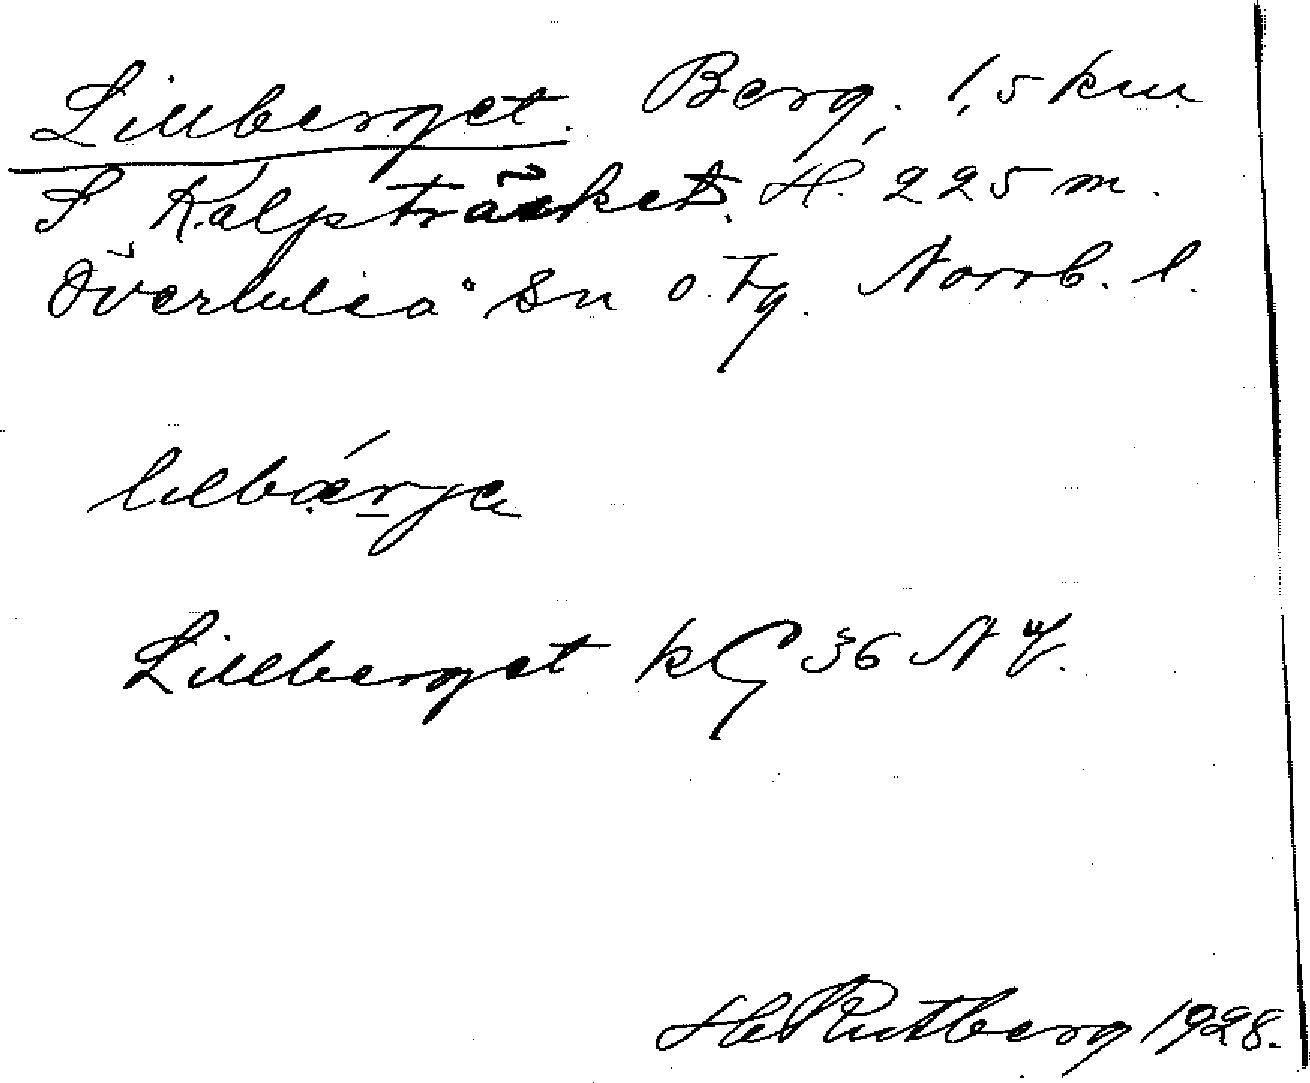 Lillberget. Berg. 1,5 km
S Kålpträsket. H. 225 m.
Överluleå sn o. Tg. Norrb. l.
lilbærje
Lillberget kG 36 NV.
H Rutberg 1928.